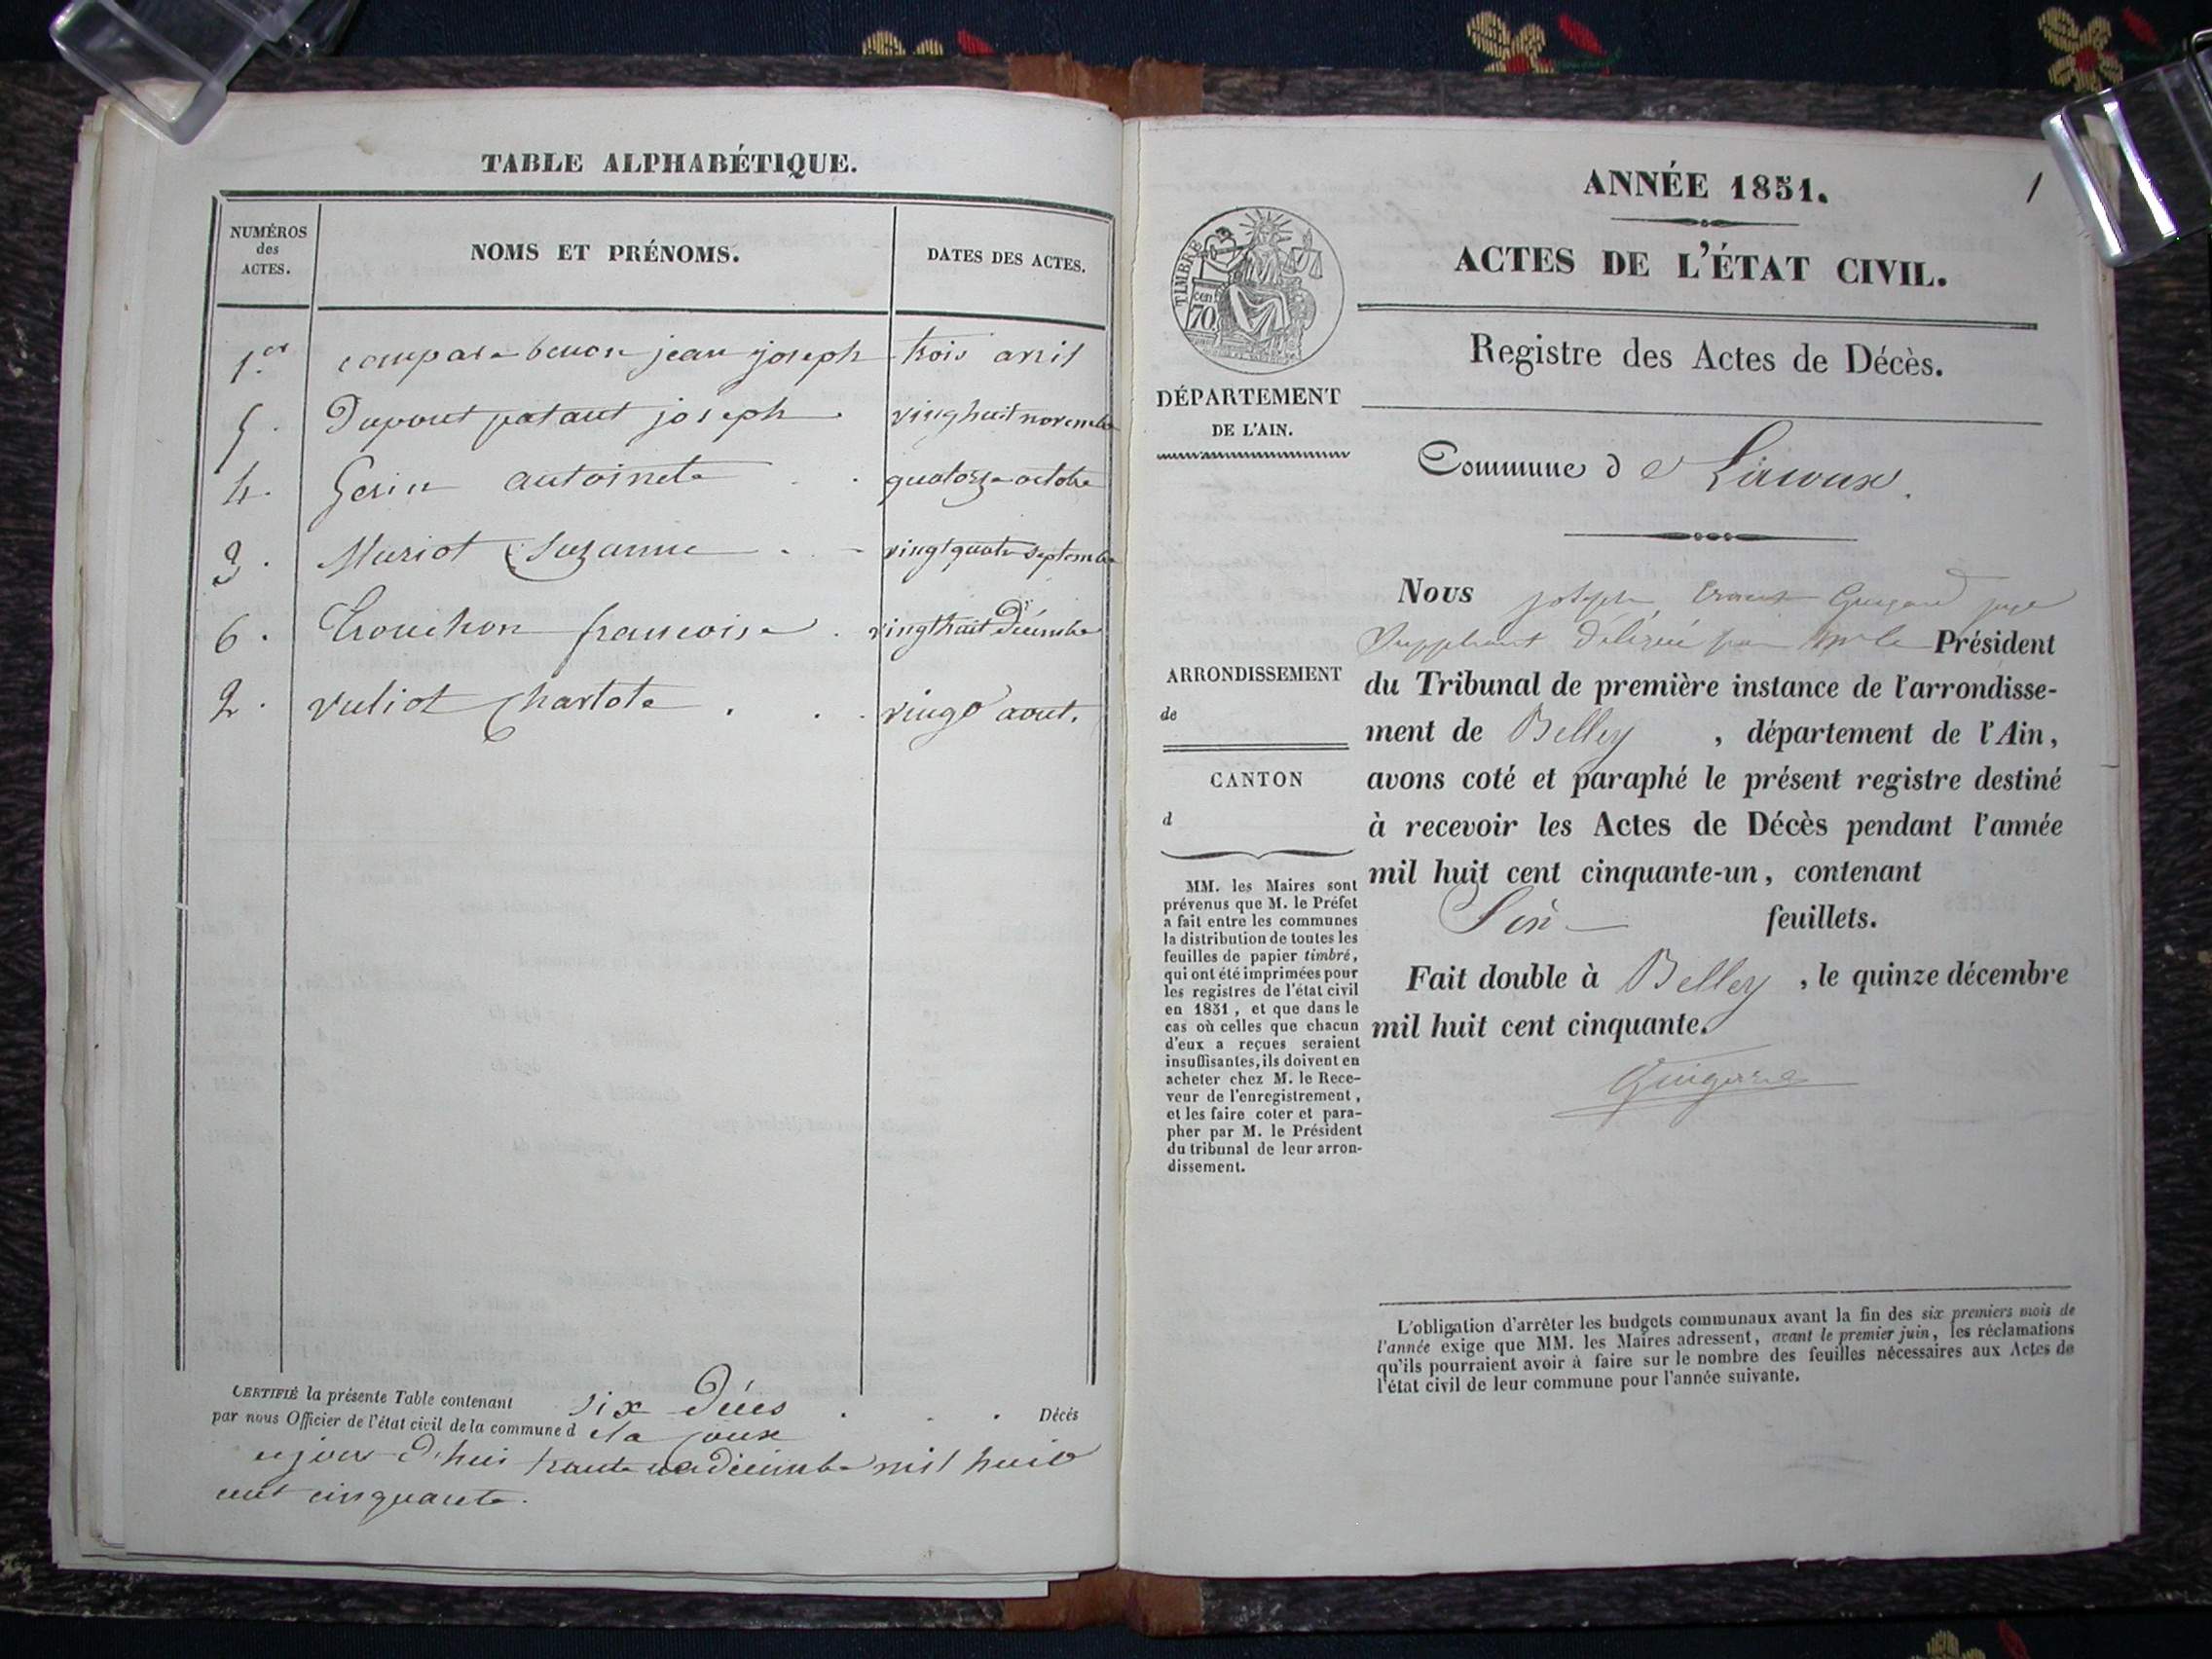 TABLE ALPHABÉTIQUE.
NUMÉROS
des
ACTES.
NOMS ET PRÉNOMS.
DATES DES ACTES.
1.er compare benon jean joseph trois avril
5. Dupont patant joseph vinghuit novembre
4. Gerin antoinete quatorze octobre
3. Muriot Suzanne vingtquatre septembre
6. Trouchon francoise vingthuit Décembre
2. vuliot Charlote vingt aout.
CERTIFIÉ la présente Table contenant six Décès Décès
par nous Officier de l'état civil de la commune d
ajour d'hui trante un décembre mil huit
cent cinquante.
1
ANNÉE 1851.
ACTES DE L'ÉTAT CIVIL.
TIMBRE
cent
70
Registre des Actes de Décès.
DÉPARTEMENT
DE L'AIN.
Commune d e
Nous joseph Guigard juge
Suppléant Délégué par Mr le Président
ARRONDISSEMENT
de
du Tribunal de première instance de l'arrondisse-
ment de Belley , département de l'Ain,
CANTON
d
avons coté et paraphé le présent registre destiné
à recevoir les Actes de Décès pendant l'année
mil huit cent cinquante-un, contenant
Six feuillets.
Fait double à Belley , le quinze décembre
mil huit cent cinquante.
MM. les Maires sont
prévenus que M. le Préfet
a fait entre les communes
la distribution de toutes les
feuilles de papier timbré,
qui ont été imprimées pour
les registres de l'état civil
en 1851, et que dans le
cas où celles que chacun
d'eux a reçues seraient
insuffisantes, ils doivent en
acheter chez M. le Rece-
veur de l'enregistrement,
et les faire coter et para-
pher par M. le Président
du tribunal de leur arron-
dissement.
L'obligation d'arrêter les budgets communaux avant la fin des six premiers mois de
l'année exige que MM. les Maires adressent, avant le premier juin, les réclamations
qu'ils pourraient avoir à faire sur le nombre des feuilles nécessaires aux Actes de
l'état civil de leur commune pour l'année suivante.